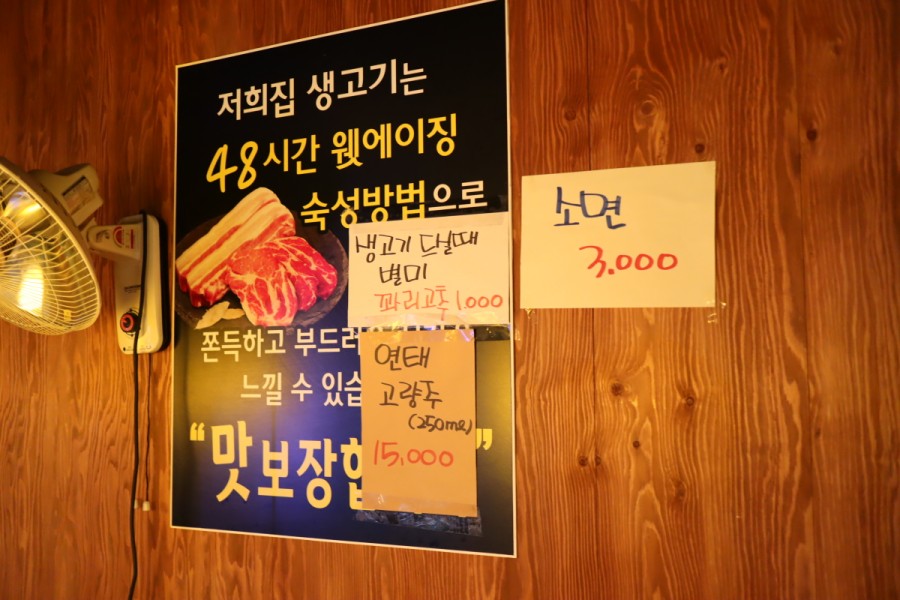 저희집 생고기는
48시간 웻에이징
숙성방법으로
생고기 드실때
별미
꽈리고추 1.000
쫀득하고
느낄 수
"맛보장
연태
고량주
(250ml)
15,000
소면
3.000